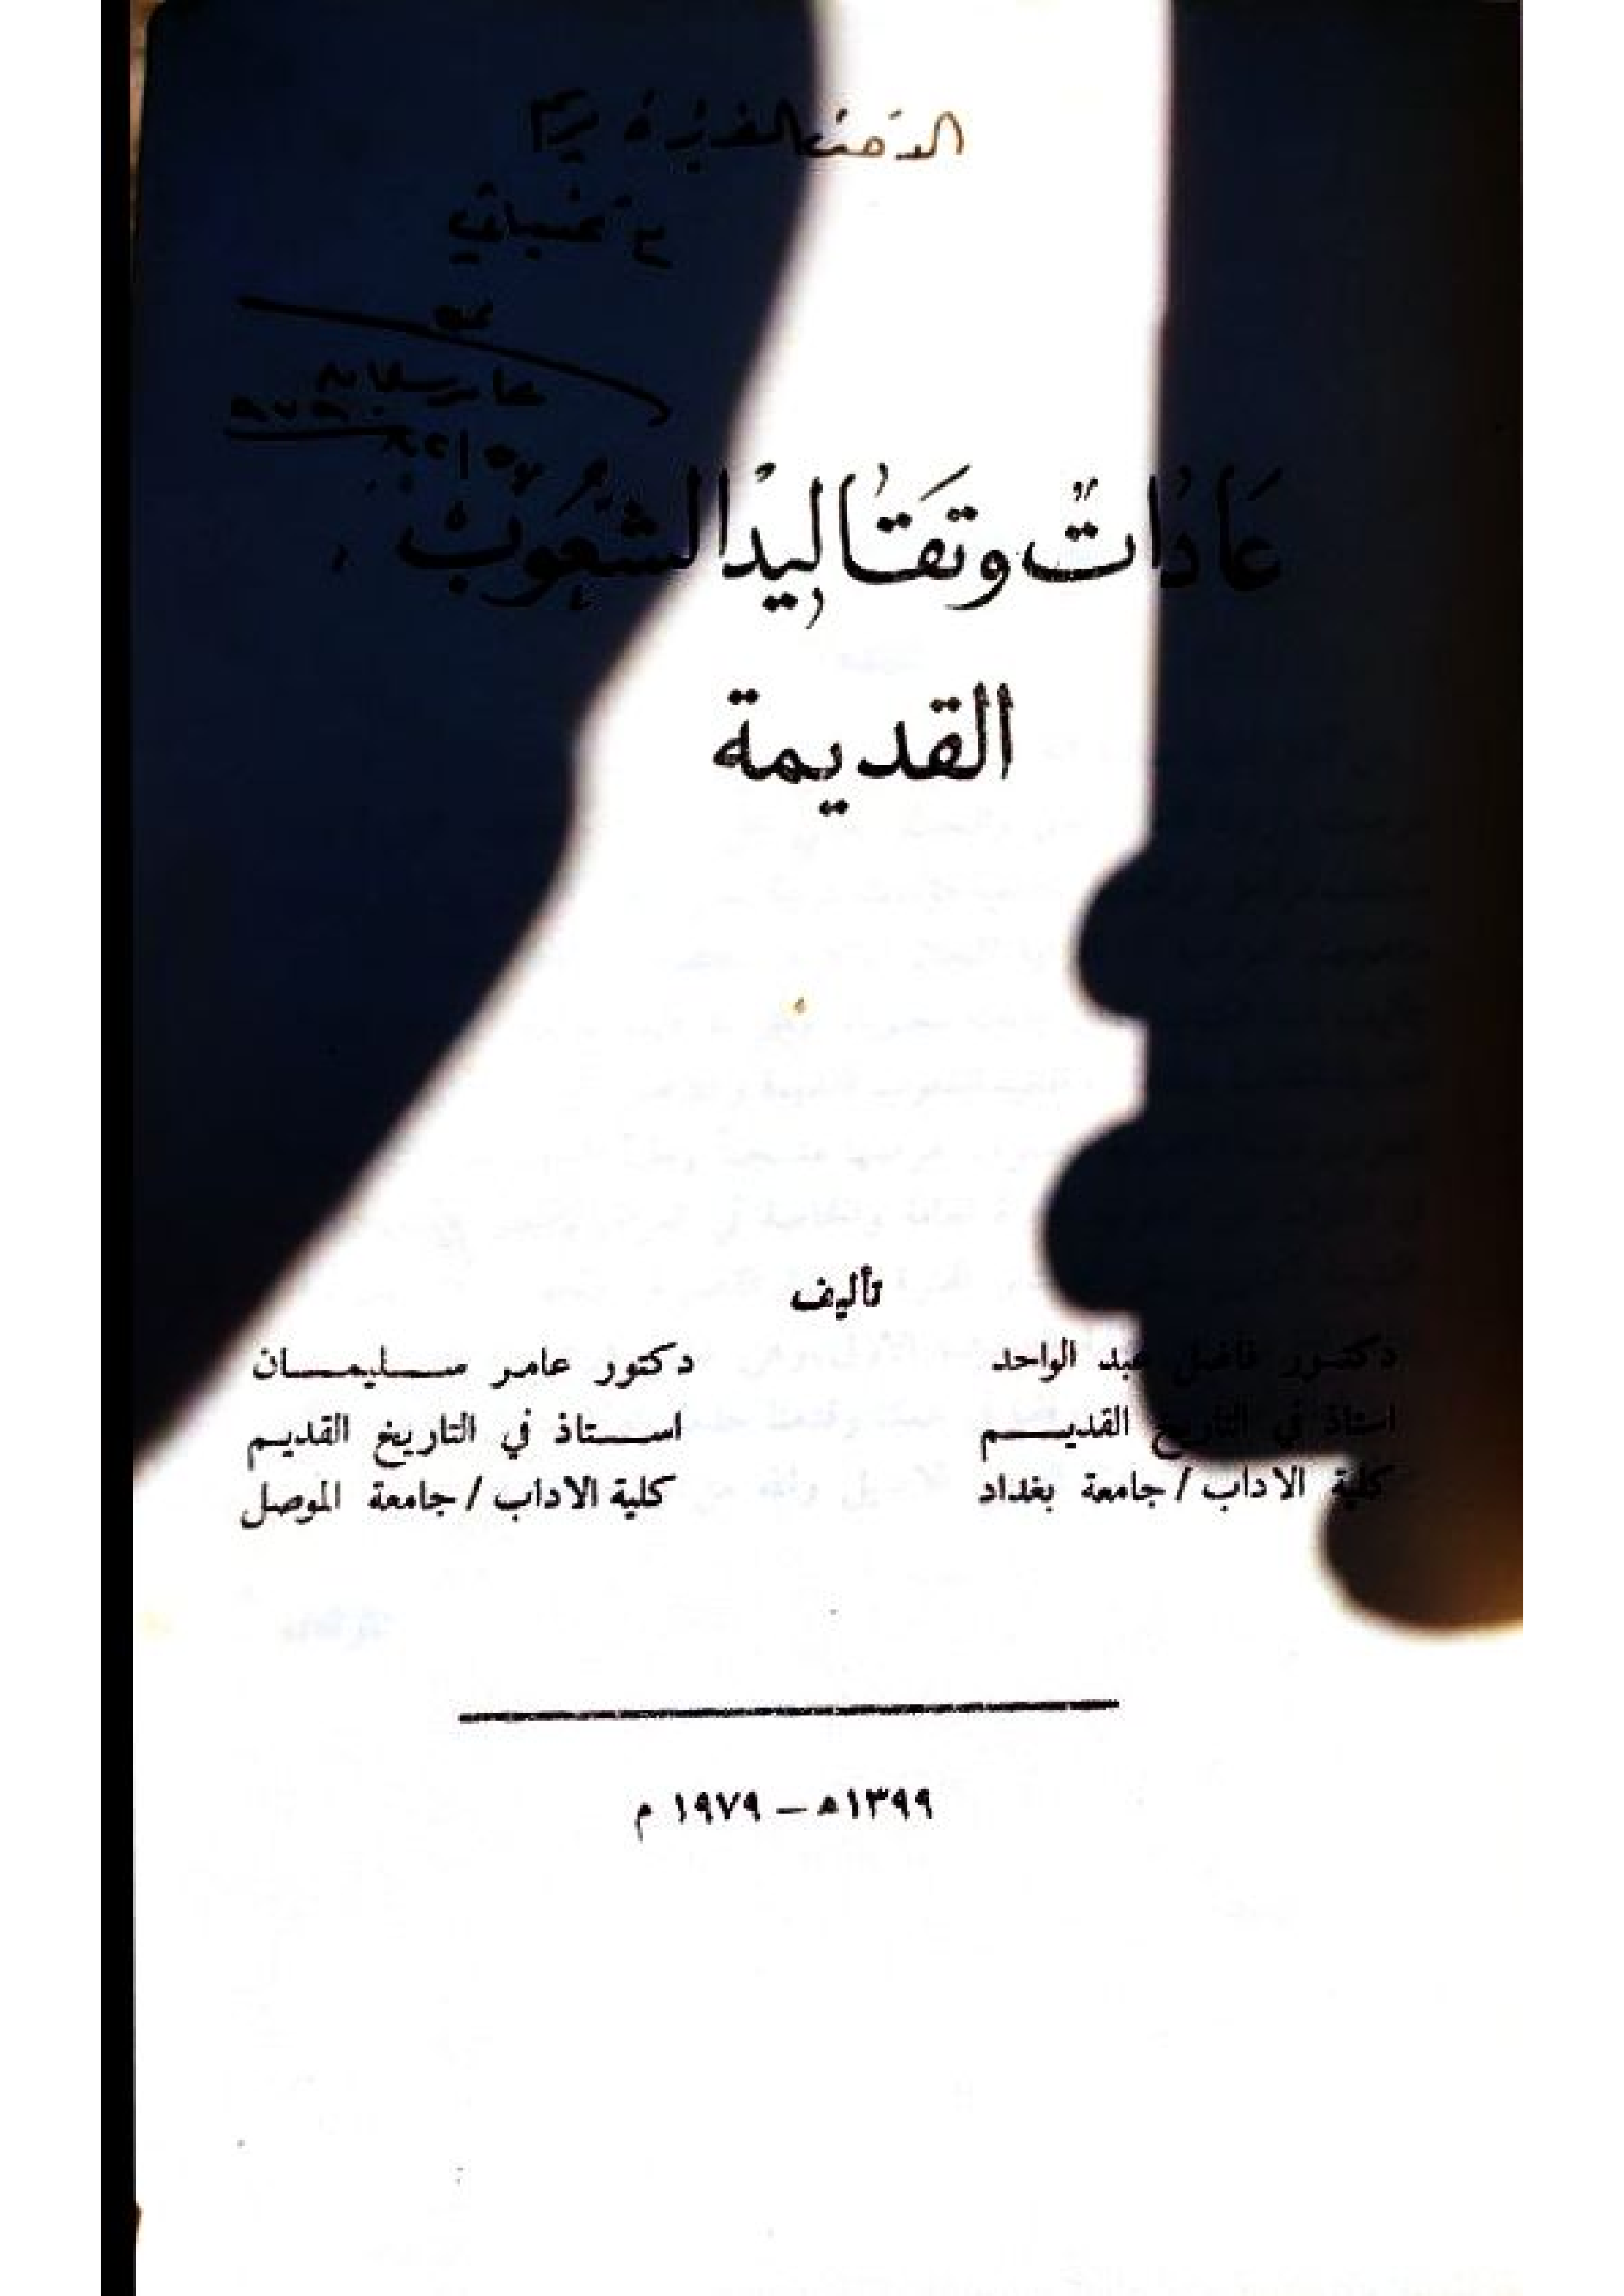 الاخت العزيزة مريم
مع تحياتي
عامر سليمان
عَادَاتٌ وتَقَاليدُ الشعُوبْ
القديمة
تأليف
دكتور فاضل عبد الواحد
استاذ في التاريخ القديم
كلية الاداب / جامعة بغداد
دكتور عامر سليمان
استاذ في التاريخ القديم
كلية الاداب / جامعة الموصل
١٣٩٩هـ – ١٩٧٩ م